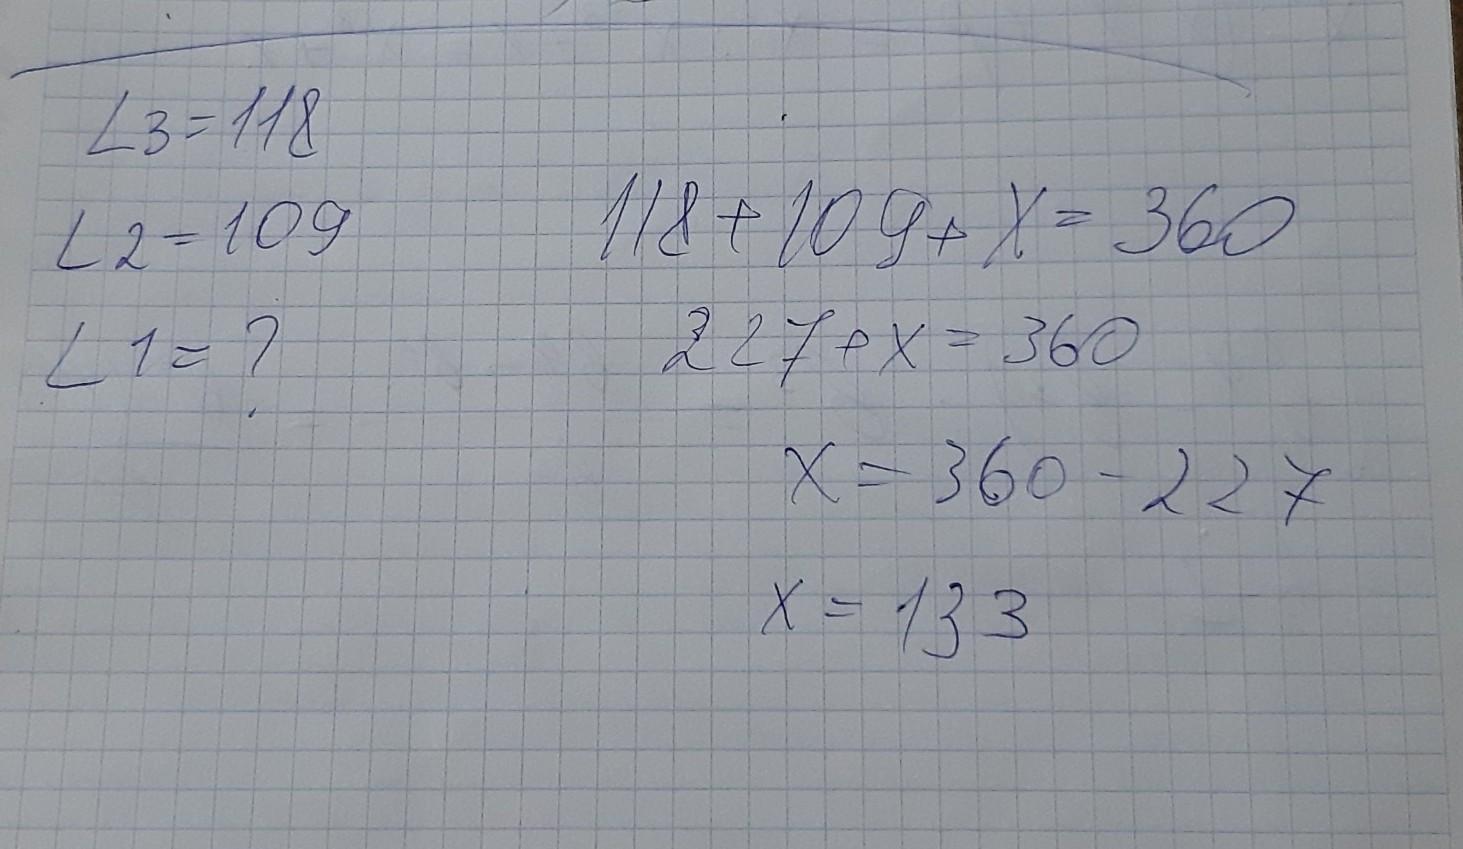 ∠3=118
∠2=109
∠1=?
118+109+x=360
227+x=360
x=360-227
x=133